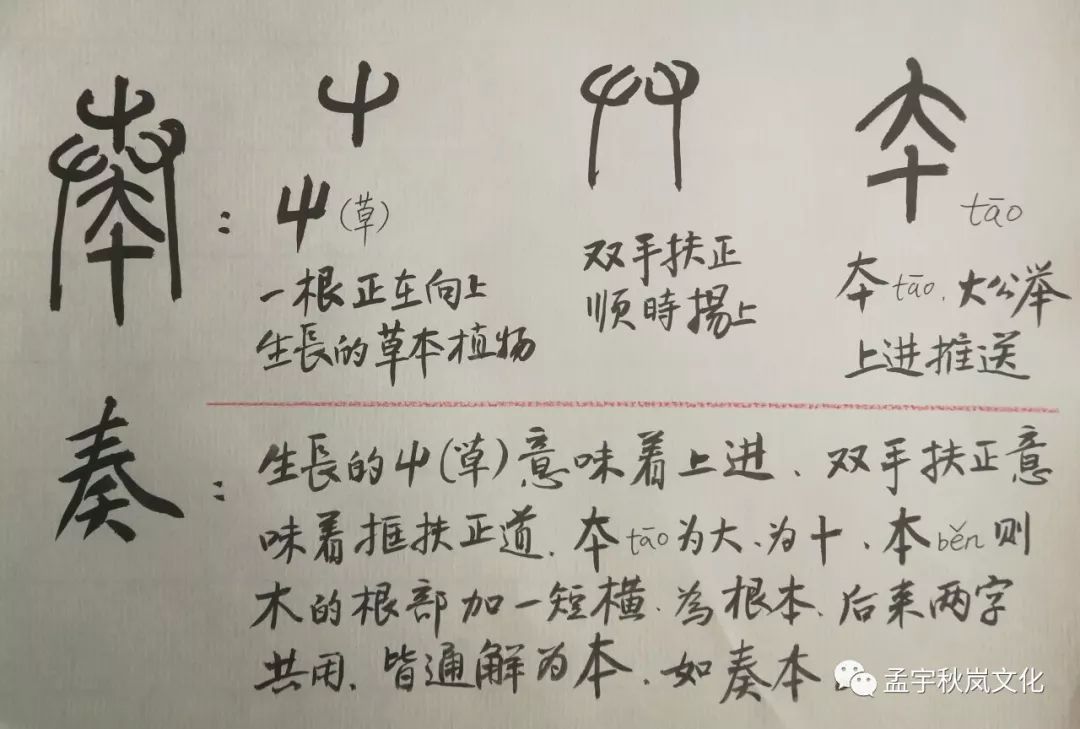 ：
屮（草）
一根正在向上
生長的草本植物
双手扶正
顺時揚上
tāo
夲tāo、大公举
上进推送
奏：
生長的屮（草）意味着上进、双手扶正意
味着框扶正道、夲tāo为大、为十、本běn则
木的根部加一短横、為根本、后来两字
共用、皆通解为本、如奏本。
孟宇秋岚文化